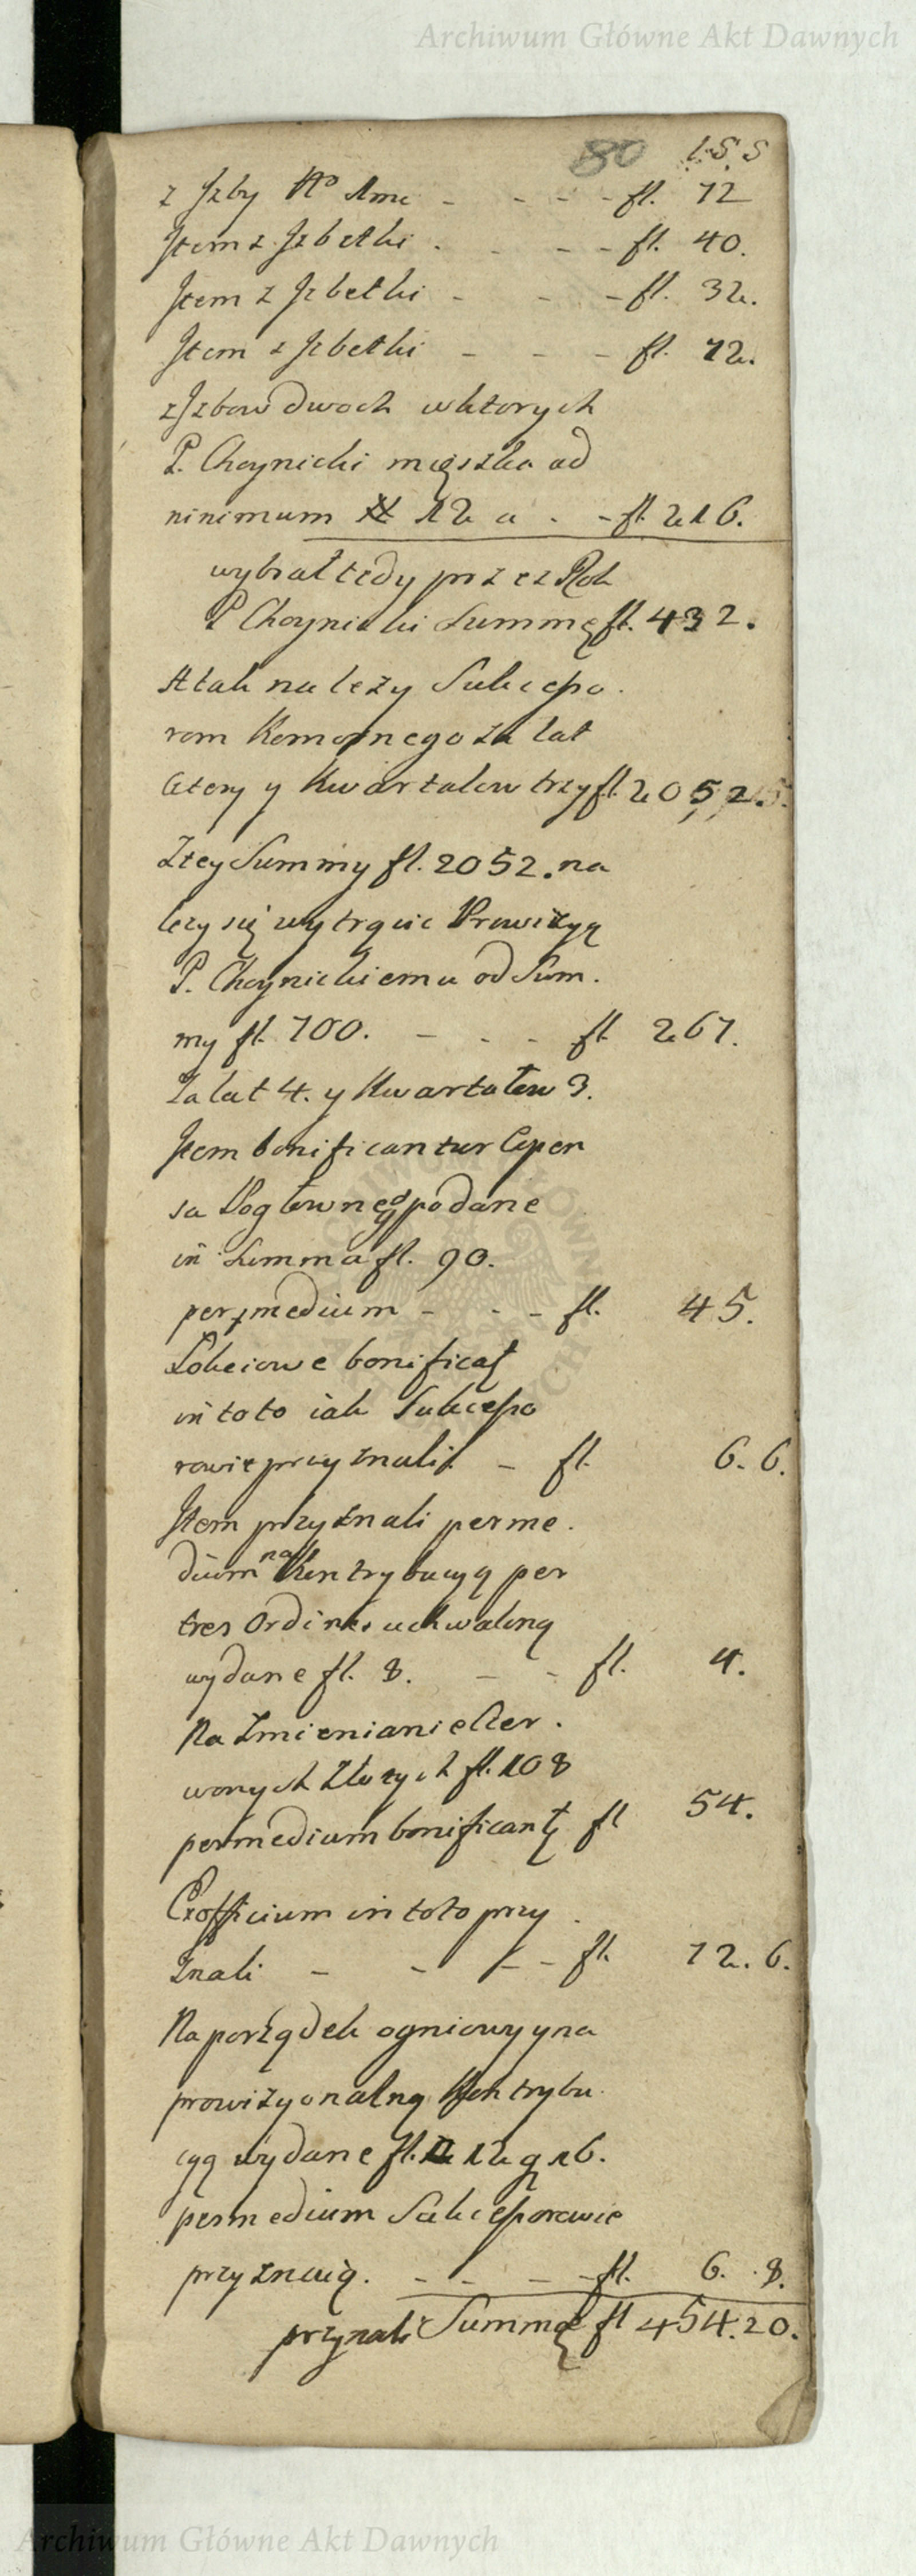 Archiwum Główne Akt Dawnych
80 155
z Jzby No 1mo - - - - fl. 72
Jtem z Jzbetki . . - - fl. 40.
Jtem z Jzbetki - - - fl. 32.
Jtem z Jzbetki - - - fl. 72.
z Jzbow dwoch wktorych
P. Choynicki mięszka ad
minimum # 12 a . - fl. 216.
wybrał tedy przez Rok
P Choynicki Summę fl. 432.
A tak należy Sukcesso.
rom Komornego za lat
Cztery y Kwartałow trzy fl 2052.
Ztey Summy fl. 2052. na
leży się wytrącic Prowizyą
P. Choynickiemu od Sum.
my fl. 700. - - - fl 267.
Za lat 4. y Kwartałow 3.
Jtem bonificantur Expen
sa Pogłownego podane
in Summa fl. 90.
per medium - - - fl. 45.
Łokciowe bonificat
in toto iak Sukcesso
rowie przyznali - fl. 6. 6.
Jtem przyznali per me.
dium na Kontrybucyą per
tres Ordines uchwaloną
wydane fl. 8. - - fl. 4.
Na Zmienianie Czer.
wonych Złotych fl. 108
per medium bonificant fl 54.
Exofficium in toto przy
Znali - - - - fl. 72. 6.
Na porządek ogniowy y na
prowizyonalną Kontrybu.
cyą wydane fl. 12 g 16.
per medium Sukcessorowie
przyznaią. - - - - fl. 6. 8.
przyznali Summę fl 454. 20.
Archiwum Główne Akt Dawnych